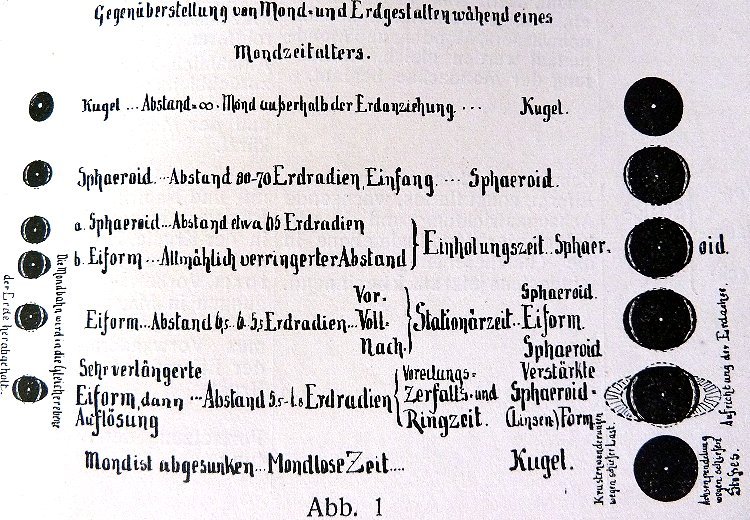 Gegenüberstellung von Mond- und Erdgestalten wähend eines
Mondzeitalters.
Kugel ... Abstand=∞. Mond außerhalb der Erdanziehung ... Kugel.
Sphaeroid. ... Abstand 80-70 Erdradien, Einfang. ... Sphaeroid.
a. Sphaeroid ... Abstand etwa 65 Erdradien
b. Eiform ... Allmählich verringerter Abstand
Einholungszeit.. Sphaer. oid.
Eiform... Abstand 6,5.. 6. 5,5 Erdradien...
Vor.
Voll.
Nach.
Stationärzeit..
Sphaeroid.
Eiform.
Sphaeroid
Sehr verlängerte
Eiform, dann ... Abstand 5.5-1.6 Erdradien
Auflösung
Voreilungs-
Zerfalls- und
Ringzeit.
Verstärkte
Sphaeroid-
(Linsen) Form
Mond ist abgesunken... Mondlose Zeit.... Kugel.
Die Mondbahn wird in die Gleicherebene
der Erde herabgeholt.
Aufrichtung der Erdachse.
Krustenwanderungen
wegen schiefer Last.
Achsenpendelung
wegen schiefen
Stoßes.
Abb. 1